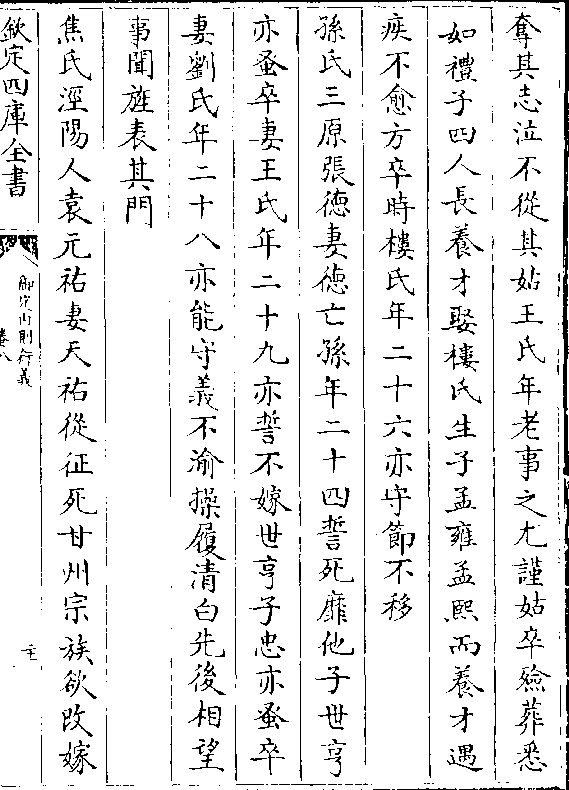 奪其志泣不從其姑王氏年老事之尤謹姑卒殮葬悉
如禮子四人長養才娶樓氏生子孟雍孟熙而養才遇
疾不愈方卒時樓氏年二十六亦守節不移
孫氏三原張徳妻徳亡孫年二十四誓死靡他子世亨
亦蚤卒妻王氏年二十九亦誓不嫁世亨子忠亦蚤卒
妻劉氏年二十八亦能守義不渝操履清白先後相望
事聞旌表其門
焦氏涇陽人袁元祐妻天祐從征死甘州宗族欲改嫁
欽定四庫全書
御定內則衍義
卷八